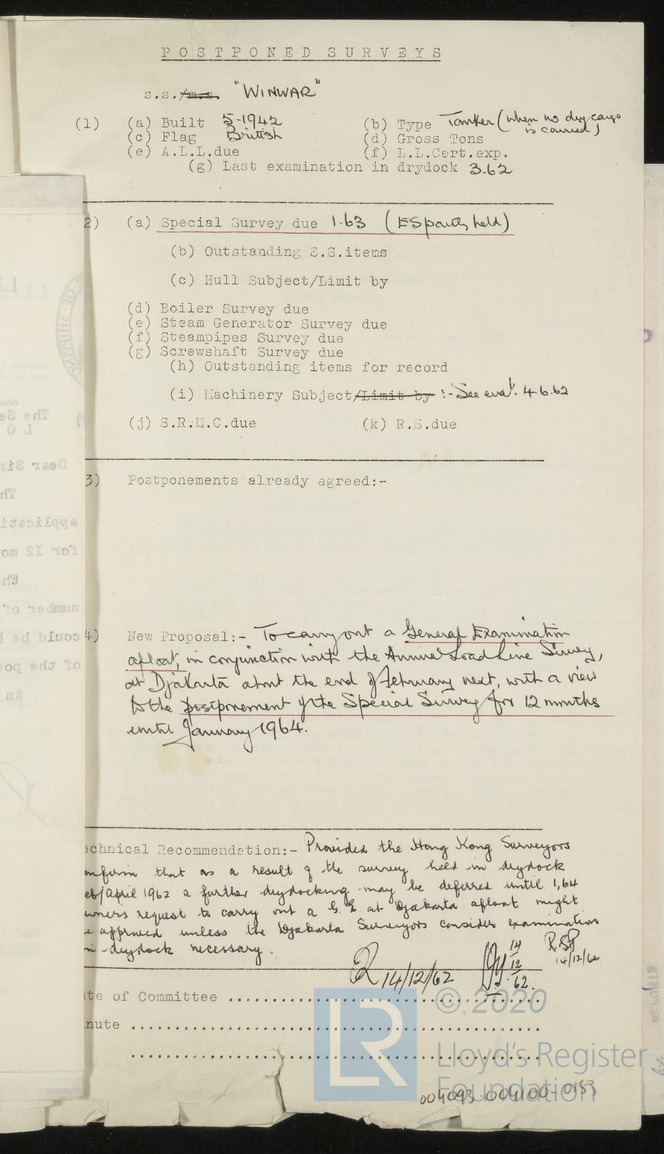 POSTPONED SURVEYS
s.s./m.s. "WINWAR"
(1) (a) Built 5-1942 (b) Type Tanker (when no dry cargo is carried)
(c) Flag British (d) Gross Tons
(e) A.L.L.due (f) L.L.Cert.exp.
(g) Last examination in drydock 3.62
2) (a) Special Survey due 1.63 (ES partly held)
(b) Outstanding E.S.items
(c) Hull Subject/Limit by
(d) Boiler Survey due
(e) Steam Generator Survey due
(f) Steampipes Survey due
(g) Screwshaft Survey due
(h) Outstanding items for record
(i) Machinery Subject/Limit by :- See 4.6.62
(j) S.R.M.C.due (k) R.S.due
3) Postponements already agreed:-
4) New Proposal:- To carry out a General Examination
afloat, in conjunction with the Annual Load Line Survey,
at Djakarta about the end of February next, with a view
to the postponement of the Special Survey for 12 months
until January 1964.
echnical Recommendation:- Provided the Hong Kong Surveyors
onfirm that as a result of the survey held in drydock
eb/April 1962 a further drydocking may be deferred until 1,64
wners request to carry out a G.E. at Djakarta afloat might
e approved unless the Djakarta Surveyors consider examination
n drydock necessary.
14/12/62 14/12/62. 14/12/62
te of Committee
nute
© 2020
Lloyd's Register
Foundation
004093-004100-0153